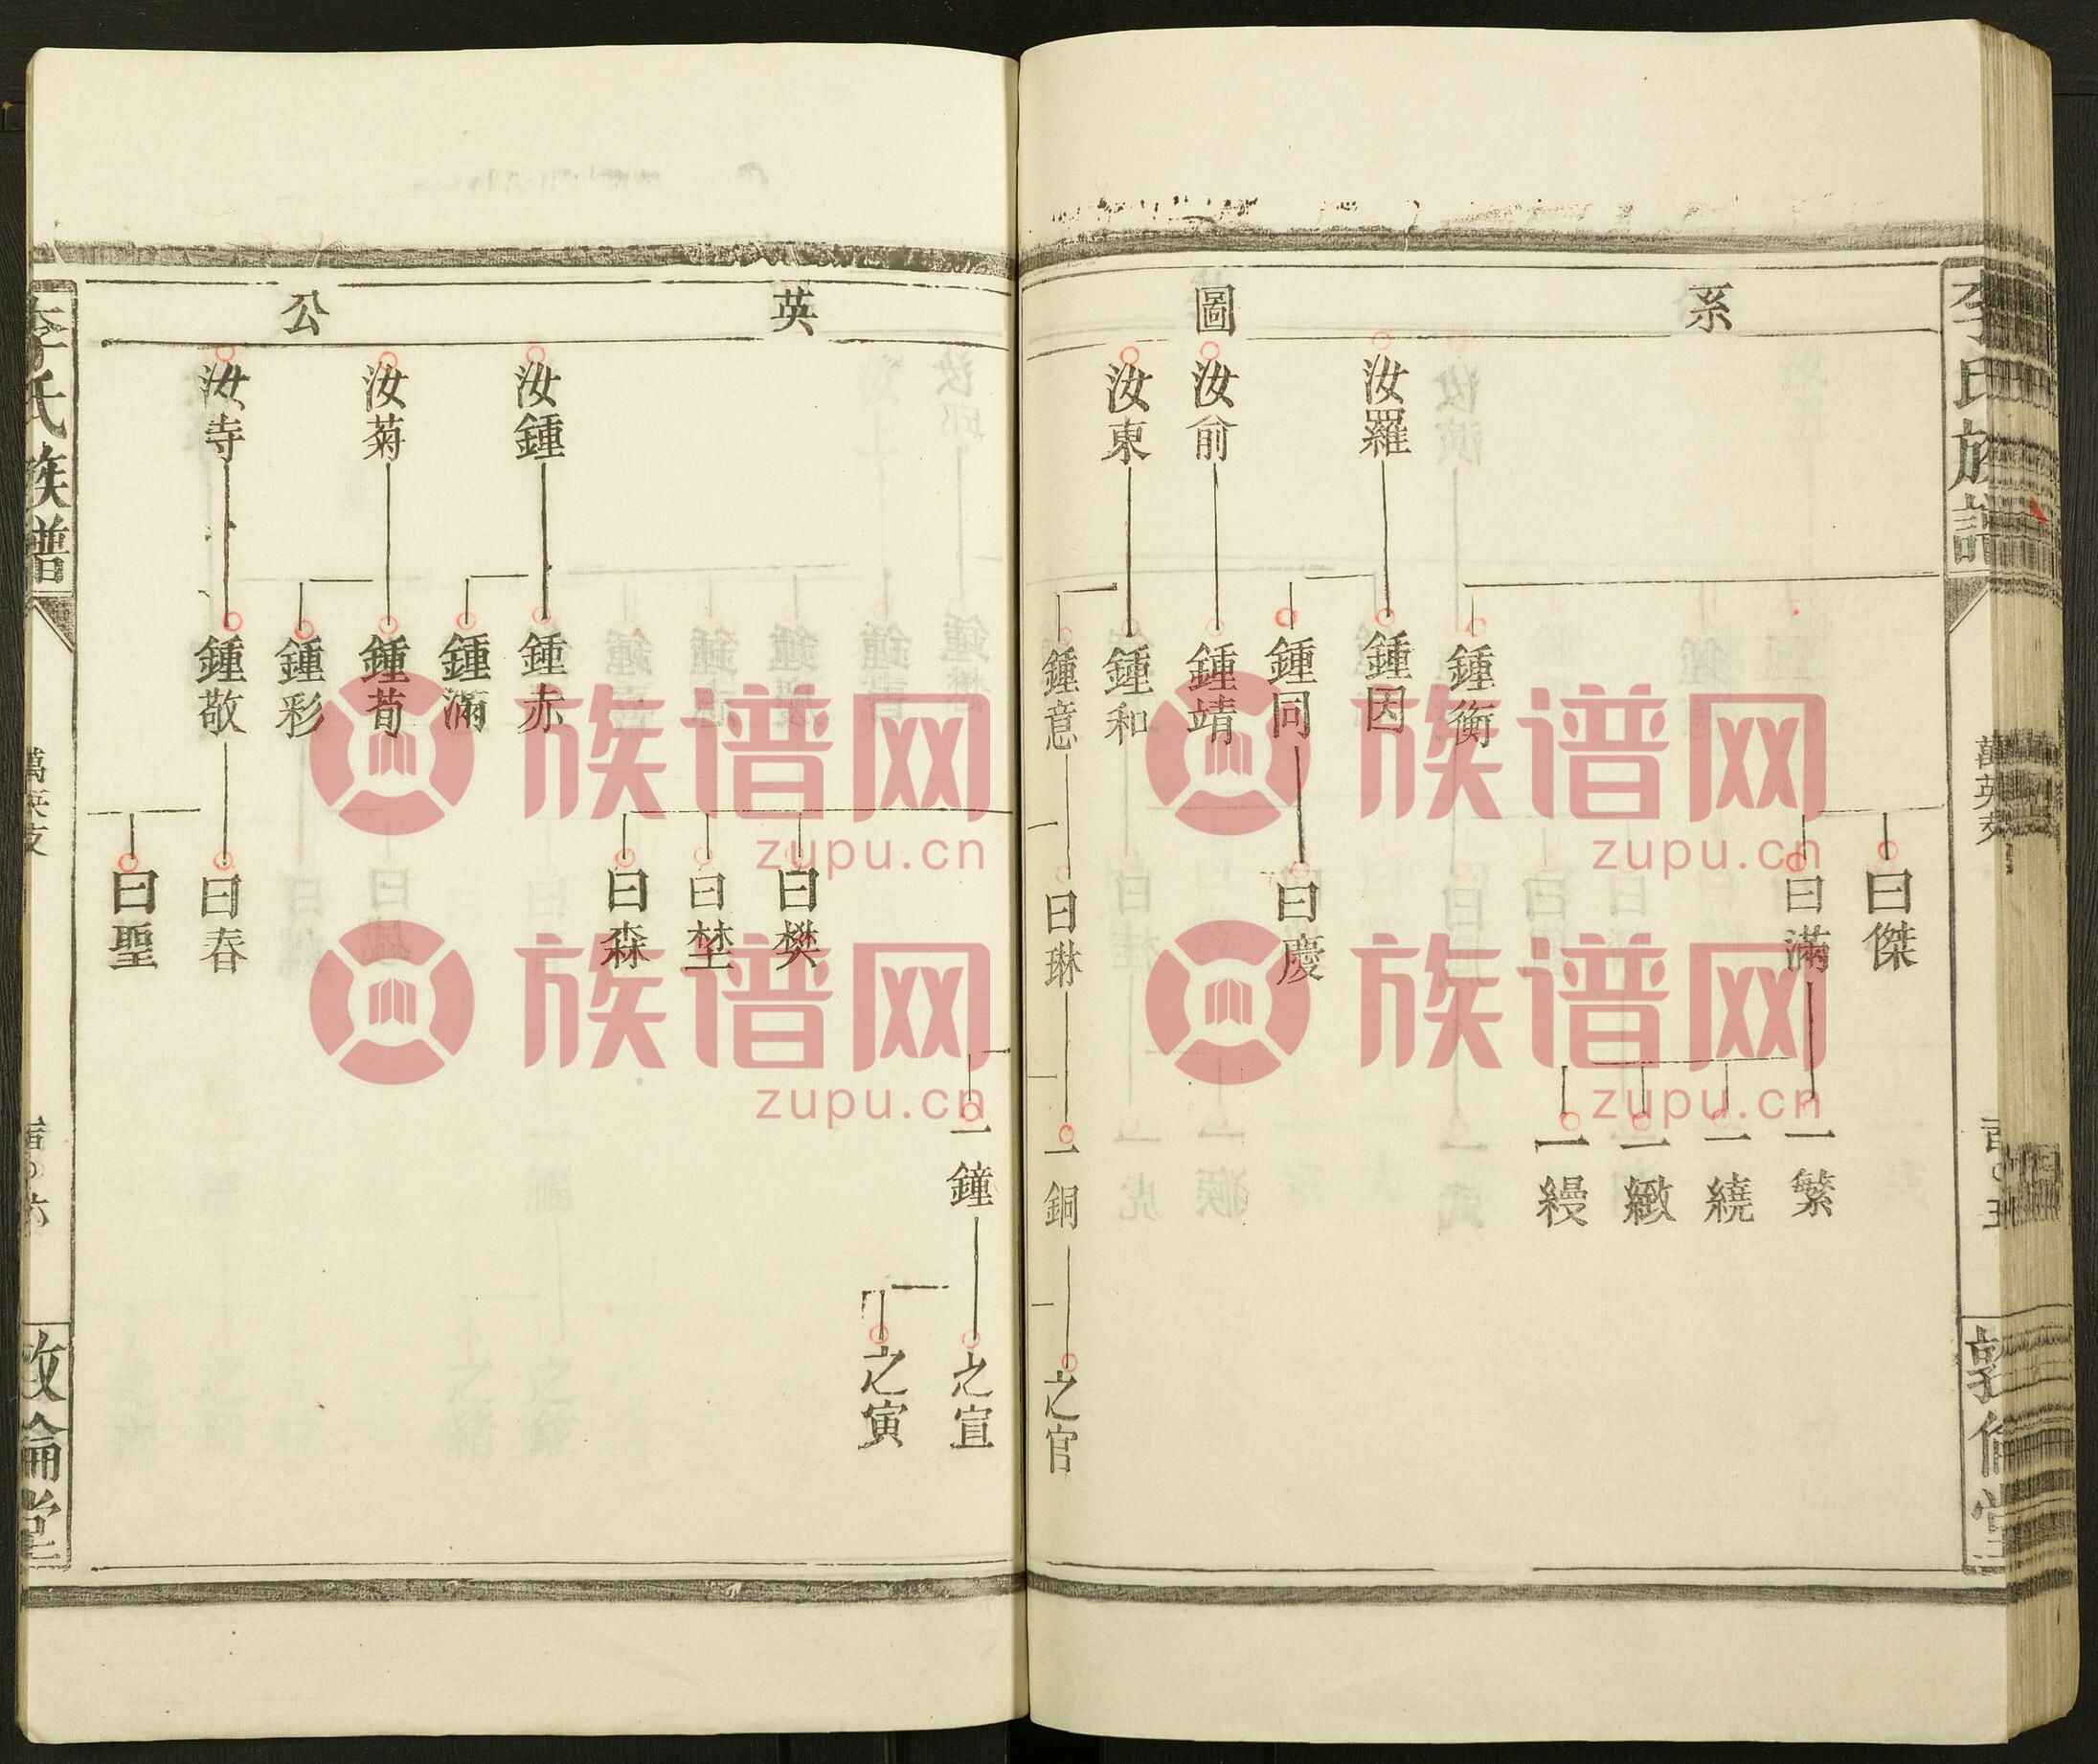 李氏族譜
萬英支
敦倫堂
系
圖
汝羅
汝俞
汝東
鍾衡
鍾因
鍾同
鍾靖
鍾和
鍾意
曰傑
曰滿
曰慶
曰琳
一繁
一繞
一緻
一縵
一銅
之官
英
公
汝鍾
汝菊
汝寺
鍾赤
鍾滿
鍾荀
鍾彩
鍾敬
曰樊
曰埜
曰森
曰春
曰聖
一鐘
之宣
之寅
李氏族譜
萬英支
敦倫堂
族谱网
zupu.cn
族谱网
zupu.cn
族谱网
zupu.cn
族谱网
zupu.cn